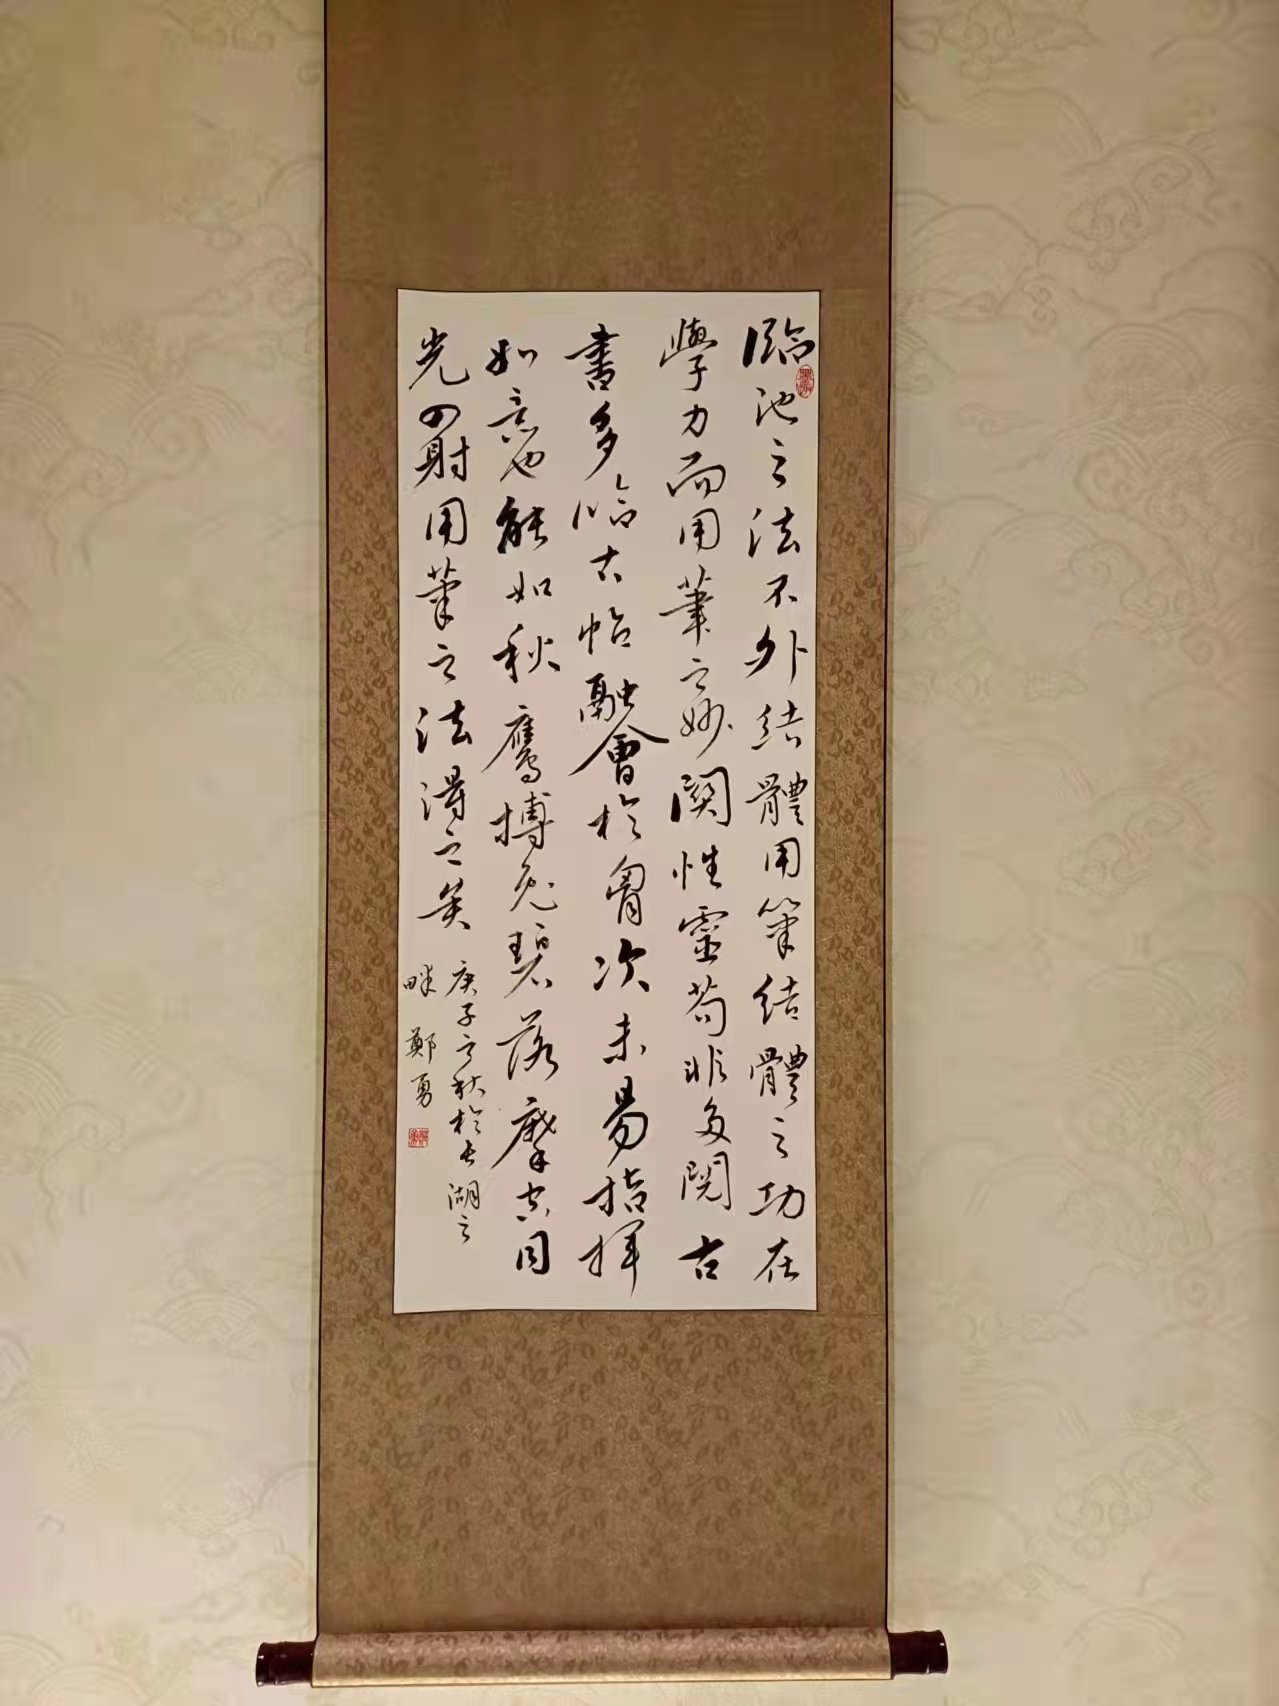 臨池之法不外結體用筆結體之功在
學力而用筆之妙關性靈苟非多閱古
書多临古帖融會於胷次未易指揮
如意也能如秋鷹搏兔碧落摩空目
光四射用筆之法得之矣
庚子之秋於长湖之
畔 鄭勇